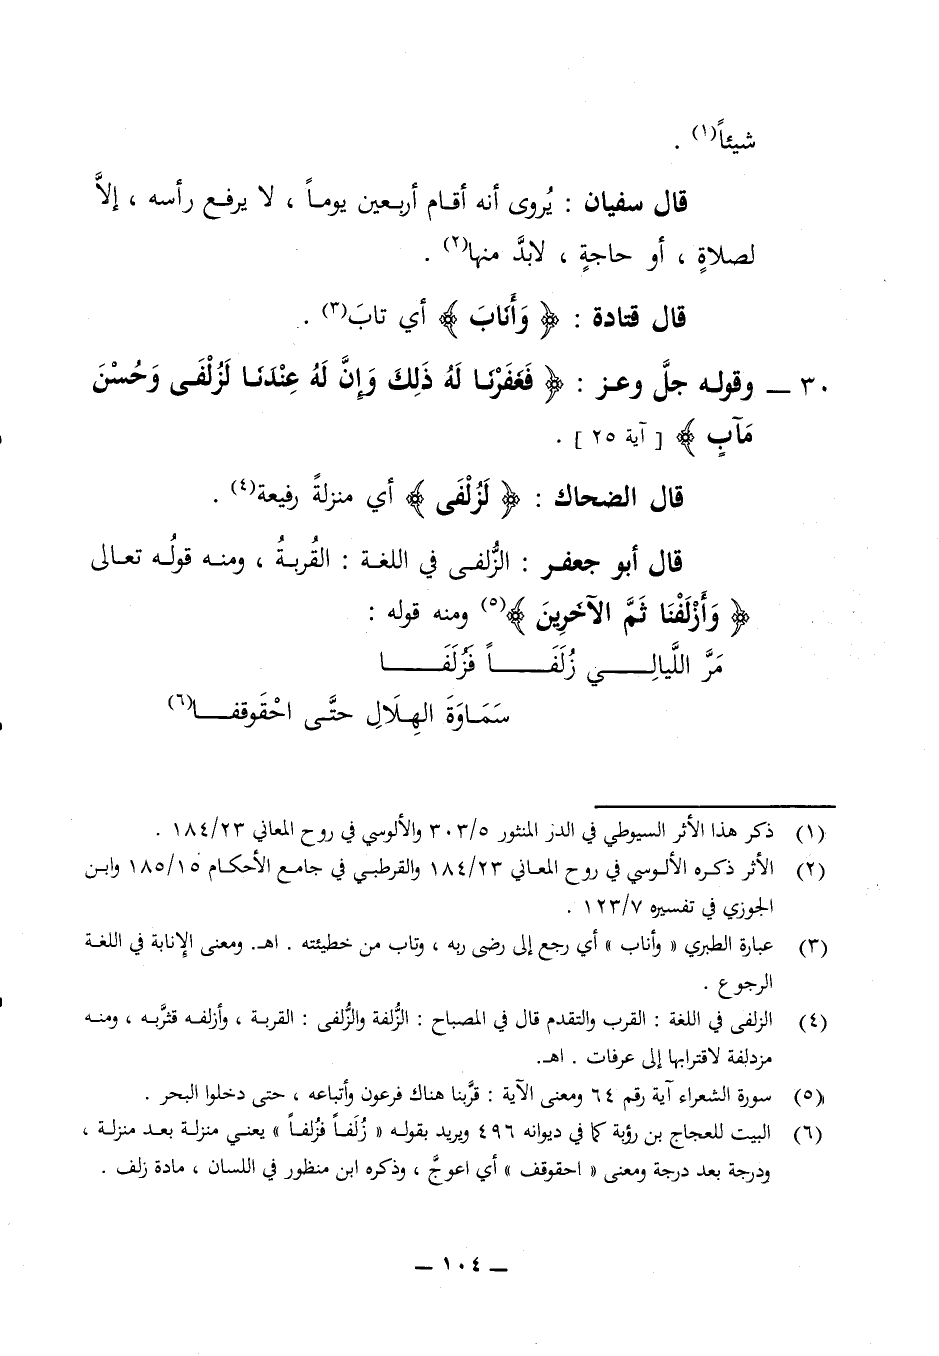 شيئاً(١) .
قال سفيان : يُروى أنه أقام أربعين يوماً ، لا يرفع رأسه ، إلاَّ
لصلاةٍ ، أو حاجةٍ ، لابدَّ منها(٢) .
قال قتادة : ﴿ وَأَنَابَ ﴾ أي تابَ(٣) .
٣٠ ـ وقوله جلَّ وعز : ﴿ فَغَفَرْنَا لَهُ ذَلِكَ وَإِنَّ لَهُ عِنْدَنَا لَزُلْفَى وَحُسْنَ
مَآبٍ ﴾ [ آية ٢٥ ] .
قال الضحاك : ﴿ لَزُلْفَى ﴾ أي منزلةً رفيعة(٤) .
قال أبو جعفر : الزُّلفى في اللغة : القُربةُ ، ومنه قولُه تعالى
﴿ وَأَزْلَفْنَا ثَمَّ الآخَرِينَ ﴾(٥) ومنه قوله :
مَرَّ اللَّيالِـي زُلَفَـاً فَزُلَفَـا
سَمَاوَةَ الهِلَالِ حتَّى احْقَوقفـا(٦)
(١) ذكر هذا الأثر السيوطي في الدر المنثور ٣٠٣/٥ والألوسي في روح المعاني ١٨٤/٢٣ .
(٢) الأثر ذكره الألوسي في روح المعاني ١٨٤/٢٣ والقرطبي في جامع الأحكام ١٨٥/١٥ وابن
الجوزي في تفسيره ١٢٣/٧ .
(٣) عبارة الطبري « وأناب » أي رجع إلى رضى ربه ، وتاب من خطيئته . اهـ. ومعنى الإنابة في اللغة
الرجوع .
(٤) الزلفى في اللغة : القرب والتقدم قال في المصباح : الزُّلفة والزُّلفى : القربة ، وأزلفه قرَّبه ، ومنه
مزدلفة لاقترابها إلى عرفات . اهـ.
(٥) سورة الشعراء آية رقم ٦٤ ومعنى الآية : قرَّبنا هناك فرعون وأتباعه ، حتى دخلوا البحر .
(٦) البيت للعجاج بن رؤبة كما في ديوانه ٤٩٦ ويريد بقوله « زُلَفاً فزُلفاً » يعني منزلة بعد منزلة ،
ودرجة بعد درجة ومعنى « احقوقف » أي اعوجَّ ، وذكره ابن منظور في اللسان ، مادة زلف .
ـ ١٠٤ ـ